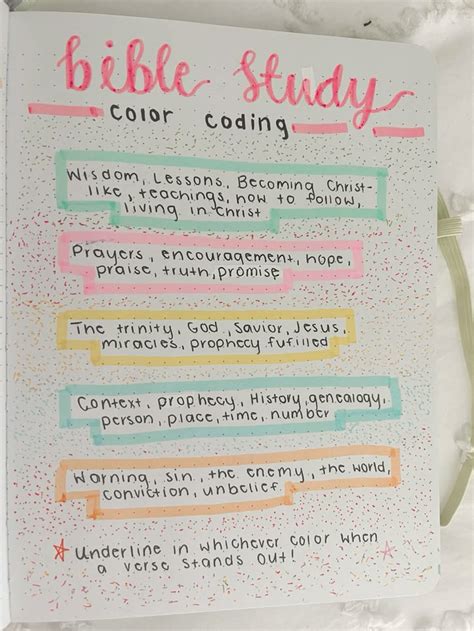 bible study
color coding
Wisdom, Lessons, Becoming Christ-
like, teachings, how to follow,
living in christ
Prayers, encouragement, hope,
praise, truth, promise
The trinity, God, Savior, Jesus,
miracles, prophecy fufilled
Context, prophecy, History, genealogy,
person, place, time, number
Warning, sin, the enemy, the world,
conviction, unbelief
☆ Underline in whichever color when ☆
a verse stands out!